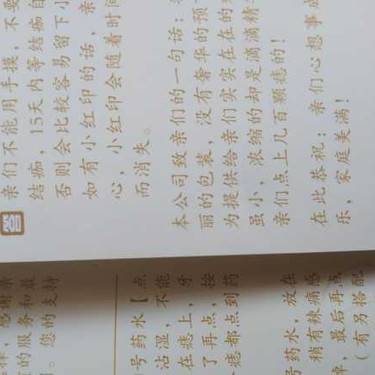 亲们不能用手摸，不要
结痂，15天内等结痂自
否则会比较容易留下小
如有小红印的话，亲
心，小红印会随着时间
而消失。
本公司致亲们的一句话：
丽的包装，没有奢华的预
为提供给亲们实实在在的
虽小，浓缩的却是滴滴精
亲们点上几百颗痣的！
在此恭祝：亲们心想事成
乐，家庭美满！
，感谢亲
的服务和最
。您的支持
号药水【点
，沾湿，不能
在痣上，牙
了再点，按
痣都点到药
号药水，放在
稍有辣痛感
，最后再点
（有另搭配，